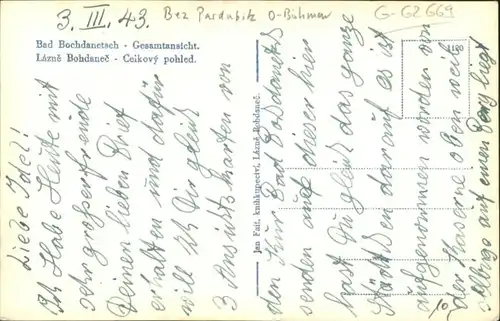 3. III. 43.
Bez Pardubitz O-Böhmen
G-GZ 669
Bad Bochdanetsch - Gesamtansicht.
Lázně Bohdaneč - Celkový pohled.
Jan Fait, knihkupectví, Lázně Bohdaneč.
1180
Liebe Idel!
Ich Habe Heute mit
sehr grosser freude
Deinen lieben Brief
erhalten und dafür
will Ich Dir gleich
3 Ansichtskarten von
den Kur Bad Bochdanetsch
senden auf dieser hier
hast Du gleich das ganze
Städtchen darauf es ist
aufgenommen worden von
der Kaserne oben weil
selbige auf einen Berg liegt
10